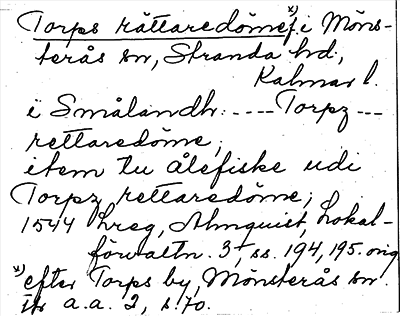 Torps rättaredöme x) i Möns-
terås sn, Stranda hd,
Kalmar l.
i Smålandh: ---- Torpz ---
rettaredöme,
item tu ålefiske udi
Torpz rettaredöme;
1544 Lreg, Almquist, Lokal-
förvaltn. 3, ss. 194, 195. orig
x) efter Torps by, Mönsterås sn.
a.a. 2, s. 70.